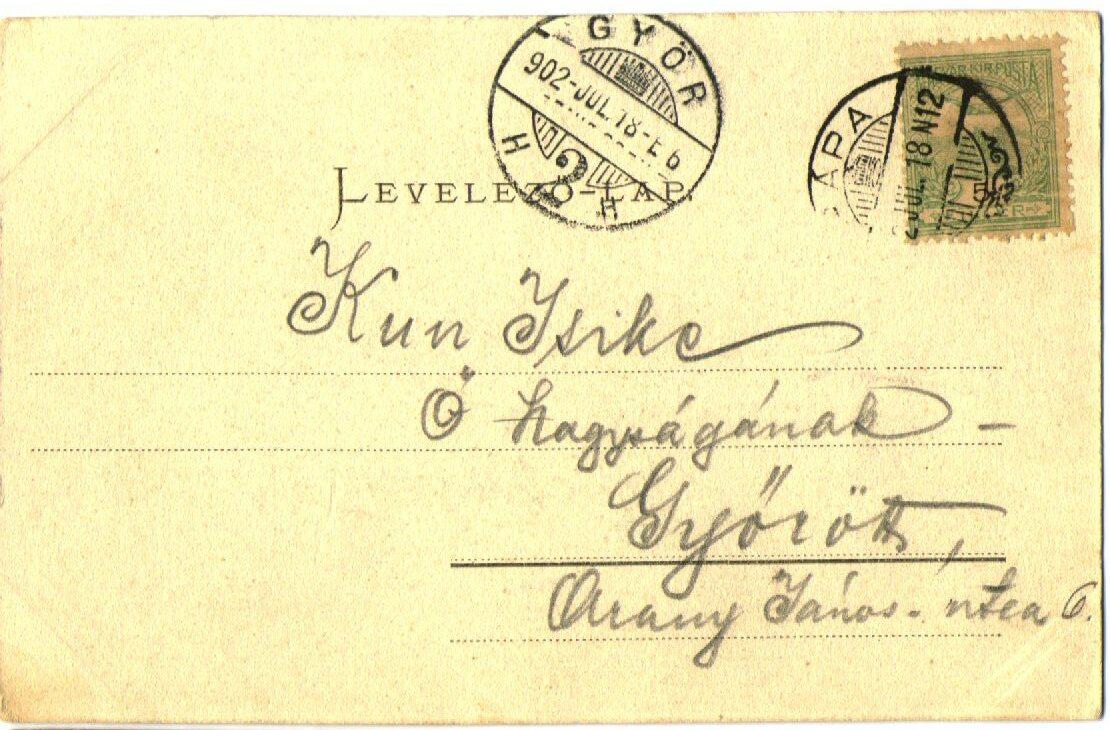 GYŐR
902-JUL.18-E6
H 2 H
PÁPA
2 JUL. 18 N12
MAGYAR KIR. POSTA
LEVELEZŐ-LAP.
Kun Isike
Ő Nagyságának –
Győrött,
Arany János-utca 6.